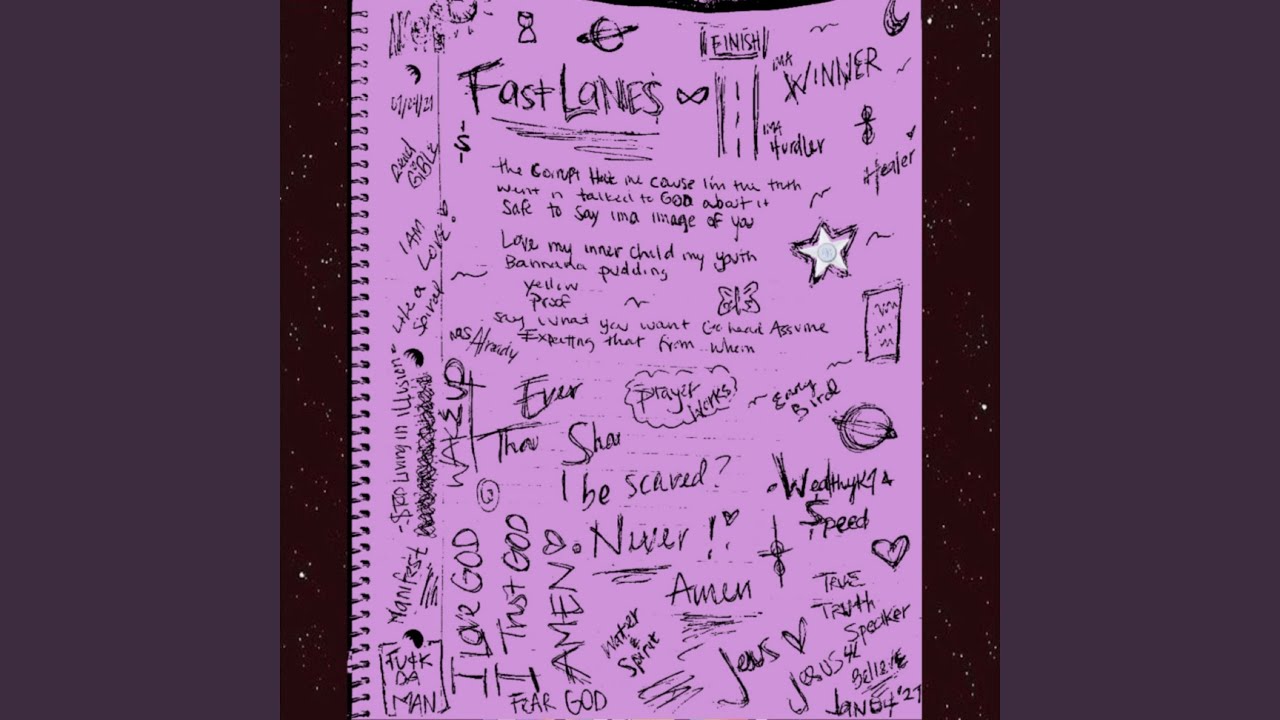 FINISH
IMA
WINNER
Fast LANES
IMA
Hurdler
Healer
the Corrupt Hate me cause I'm the truth
went n talked to GOD about it
safe to say ima image of you
Love my inner child my youth
Bannana pudding
yellow
Proof
say what you want Go head Assume
Expecting that from whom
Already
Ever
Prayer
Works
Bird
Thou Shou
I be scared?
Wealthyk9 &
Speed
Never!!
Amen
Water
&
Spirit
Jesus
TRUE
TRUTH
Speaker
JESUS 4L
BELIEVE
JAN 04 '21
01/04/21
Read
BIBLE
I AM
LOVE
Like a
Spiral
Living in illusion
WAKE UP
Manifest
FU4K
DA
MAN
I Love GOD
I Trust GOD
AMEN
FEAR GOD